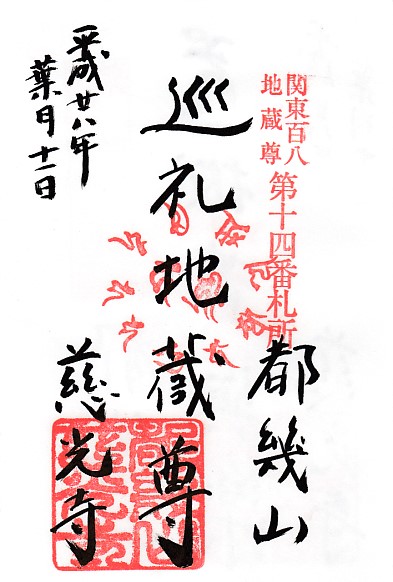 関東百八
地蔵尊
第十四番札所
都幾山
巡礼地蔵尊
慈光寺
平成廿八年
葉月十二日